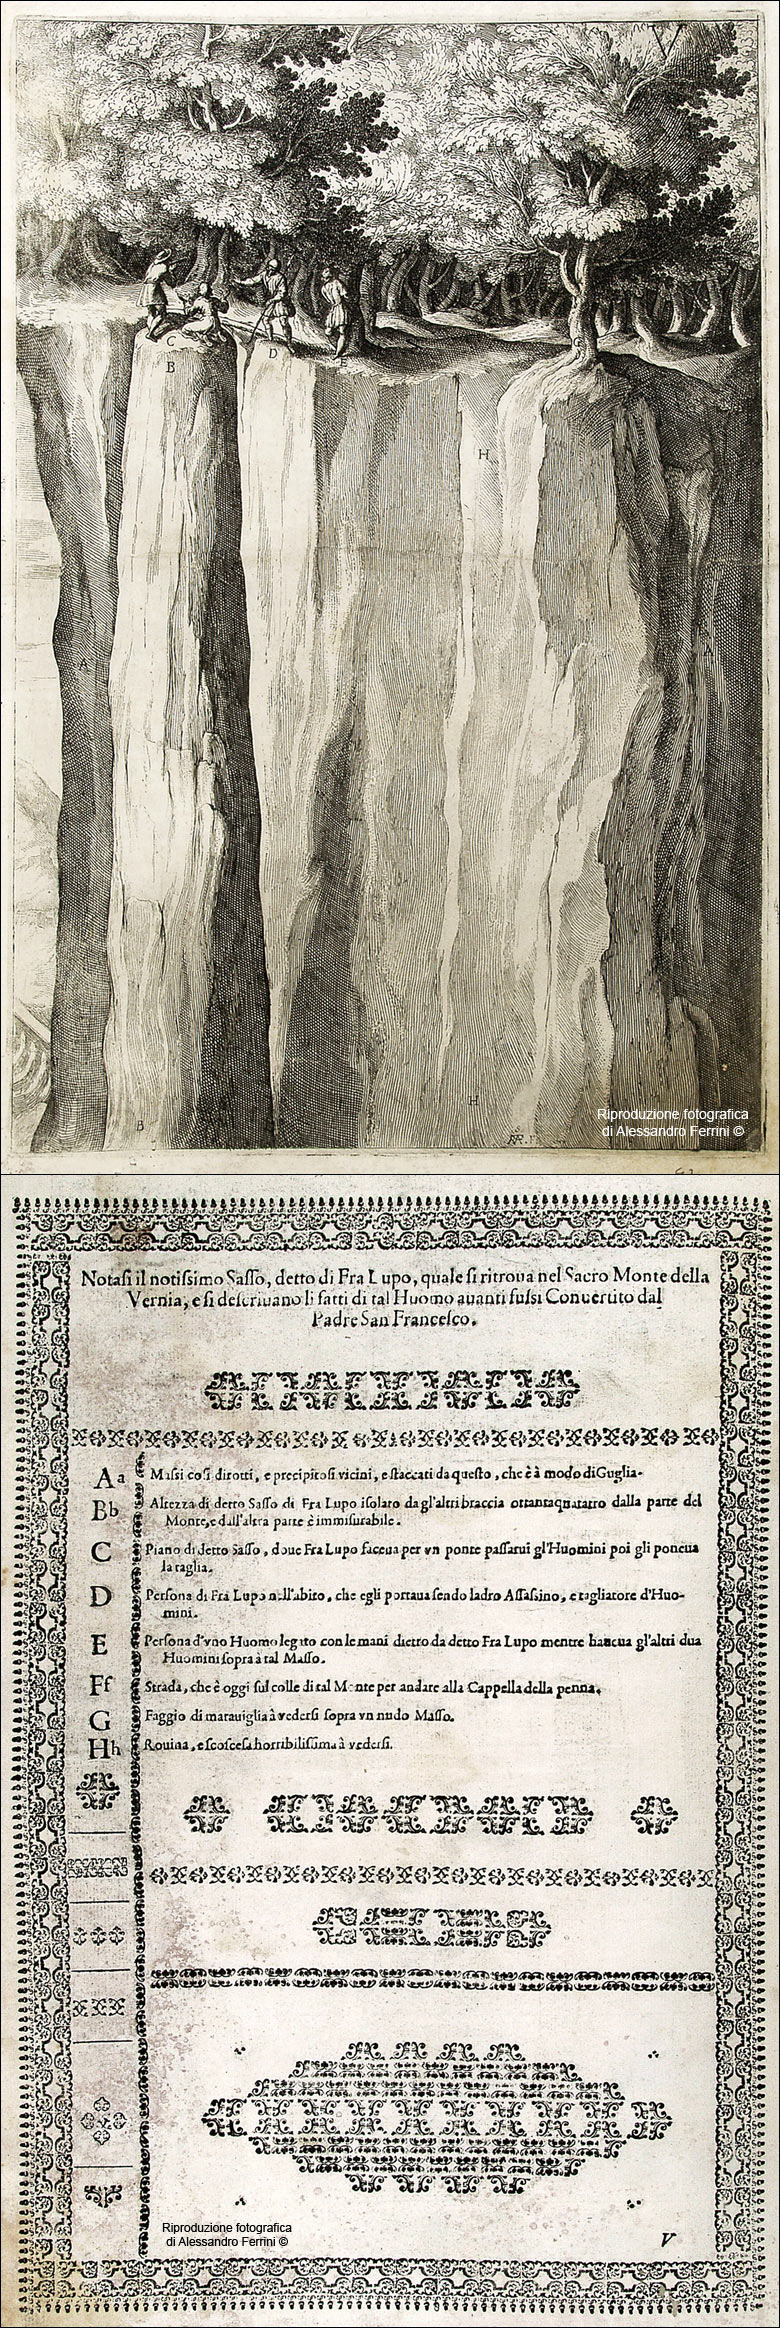 V
C
B
D
E
G
H
A
A
H
B
RR. F.
Riproduzione fotografica
di Alessandro Ferrini ©
Notasi il notissimo Sasso, detto di Fra Lupo, quale si ritroua nel Sacro Monte della
Vernia, e si descriuano li fatti di tal Huomo auanti fussi Conuertito dal
Padre San Francesco.
Aa Massi così dirotti, e precipitosi vicini, e staccati da questo, che è à modo di Guglia.
Bb Altezza di detto Sasso di Fra Lupo isolato da gl'altri braccia ottantaquatatro dalla parte del
Monte, e dall'altra parte è immisurabile.
C Piano di detto Sasso, doue Fra Lupo faceua per vn ponte passarui gl'Huomini poi gli poneua
la taglia.
D Persona di Fra Lupo nell'abito, che egli portaua sendo ladro Assassino, e tagliatore d'Huo-
mini.
E Persona d'vno Huomo legato con le mani dietro da detto Fra Lupo mentre haueua gl'altri dua
Huomini sopra à tal Masso.
Ff Strada, che è oggi sul colle di tal Monte per andare alla Cappella della penna.
G Faggio di marauiglia à vedersi sopra vn nudo Masso.
Hh Rouina, e scoscesa horribilissima à vedersi.
Riproduzione fotografica
di Alessandro Ferrini ©
V